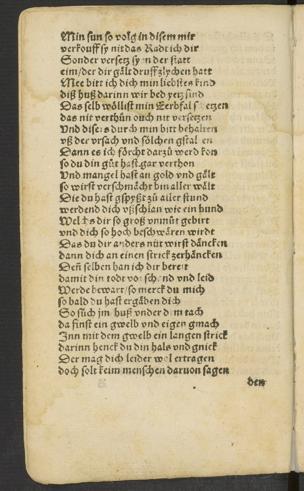 Min sun so volg in disem mir
verkouff sy nit das Radt ich dir
Sonder versetz sy in der statt
eim/der dir gält druff zlychen hatt
Mee bitt ich dich min liebstes kind
diß huß darinn wir bed yetz sind
Das selb wöllist min Eerbfal setzen
das nit verthün ouch nit versetzen
Und dises durch min bitt behalten
uß der ursach und sölchen gstalten
Dann es ich förcht darzü werd kon
so du din güt hast gar verthon
Und mangel hast an gold und gält
so wirst verschmächt bin aller wält
Die du hast gspyßt zü aller stund
werdend dich ußschlan wie ein hund
Welchs dir so groß unmüt gebirt
und dich so hoch beschwären wirdt
Das du dir anders nüt wirst däncken
dann dich an einen strick zerhäncken
Den selben han ich dir bereit
damit din todt vor schand und leid
Werde bewart/so merck du mich
so bald du hast ergäben dich
So süch im huß under dem tach
da finst ein gwelb und eigen gmach
Inn mit dem gwelb ein langen strick
darinn henck du din hals und gnick
Der mag dich leider wol ertragen
doch solt keim menschen darvon sagen
den